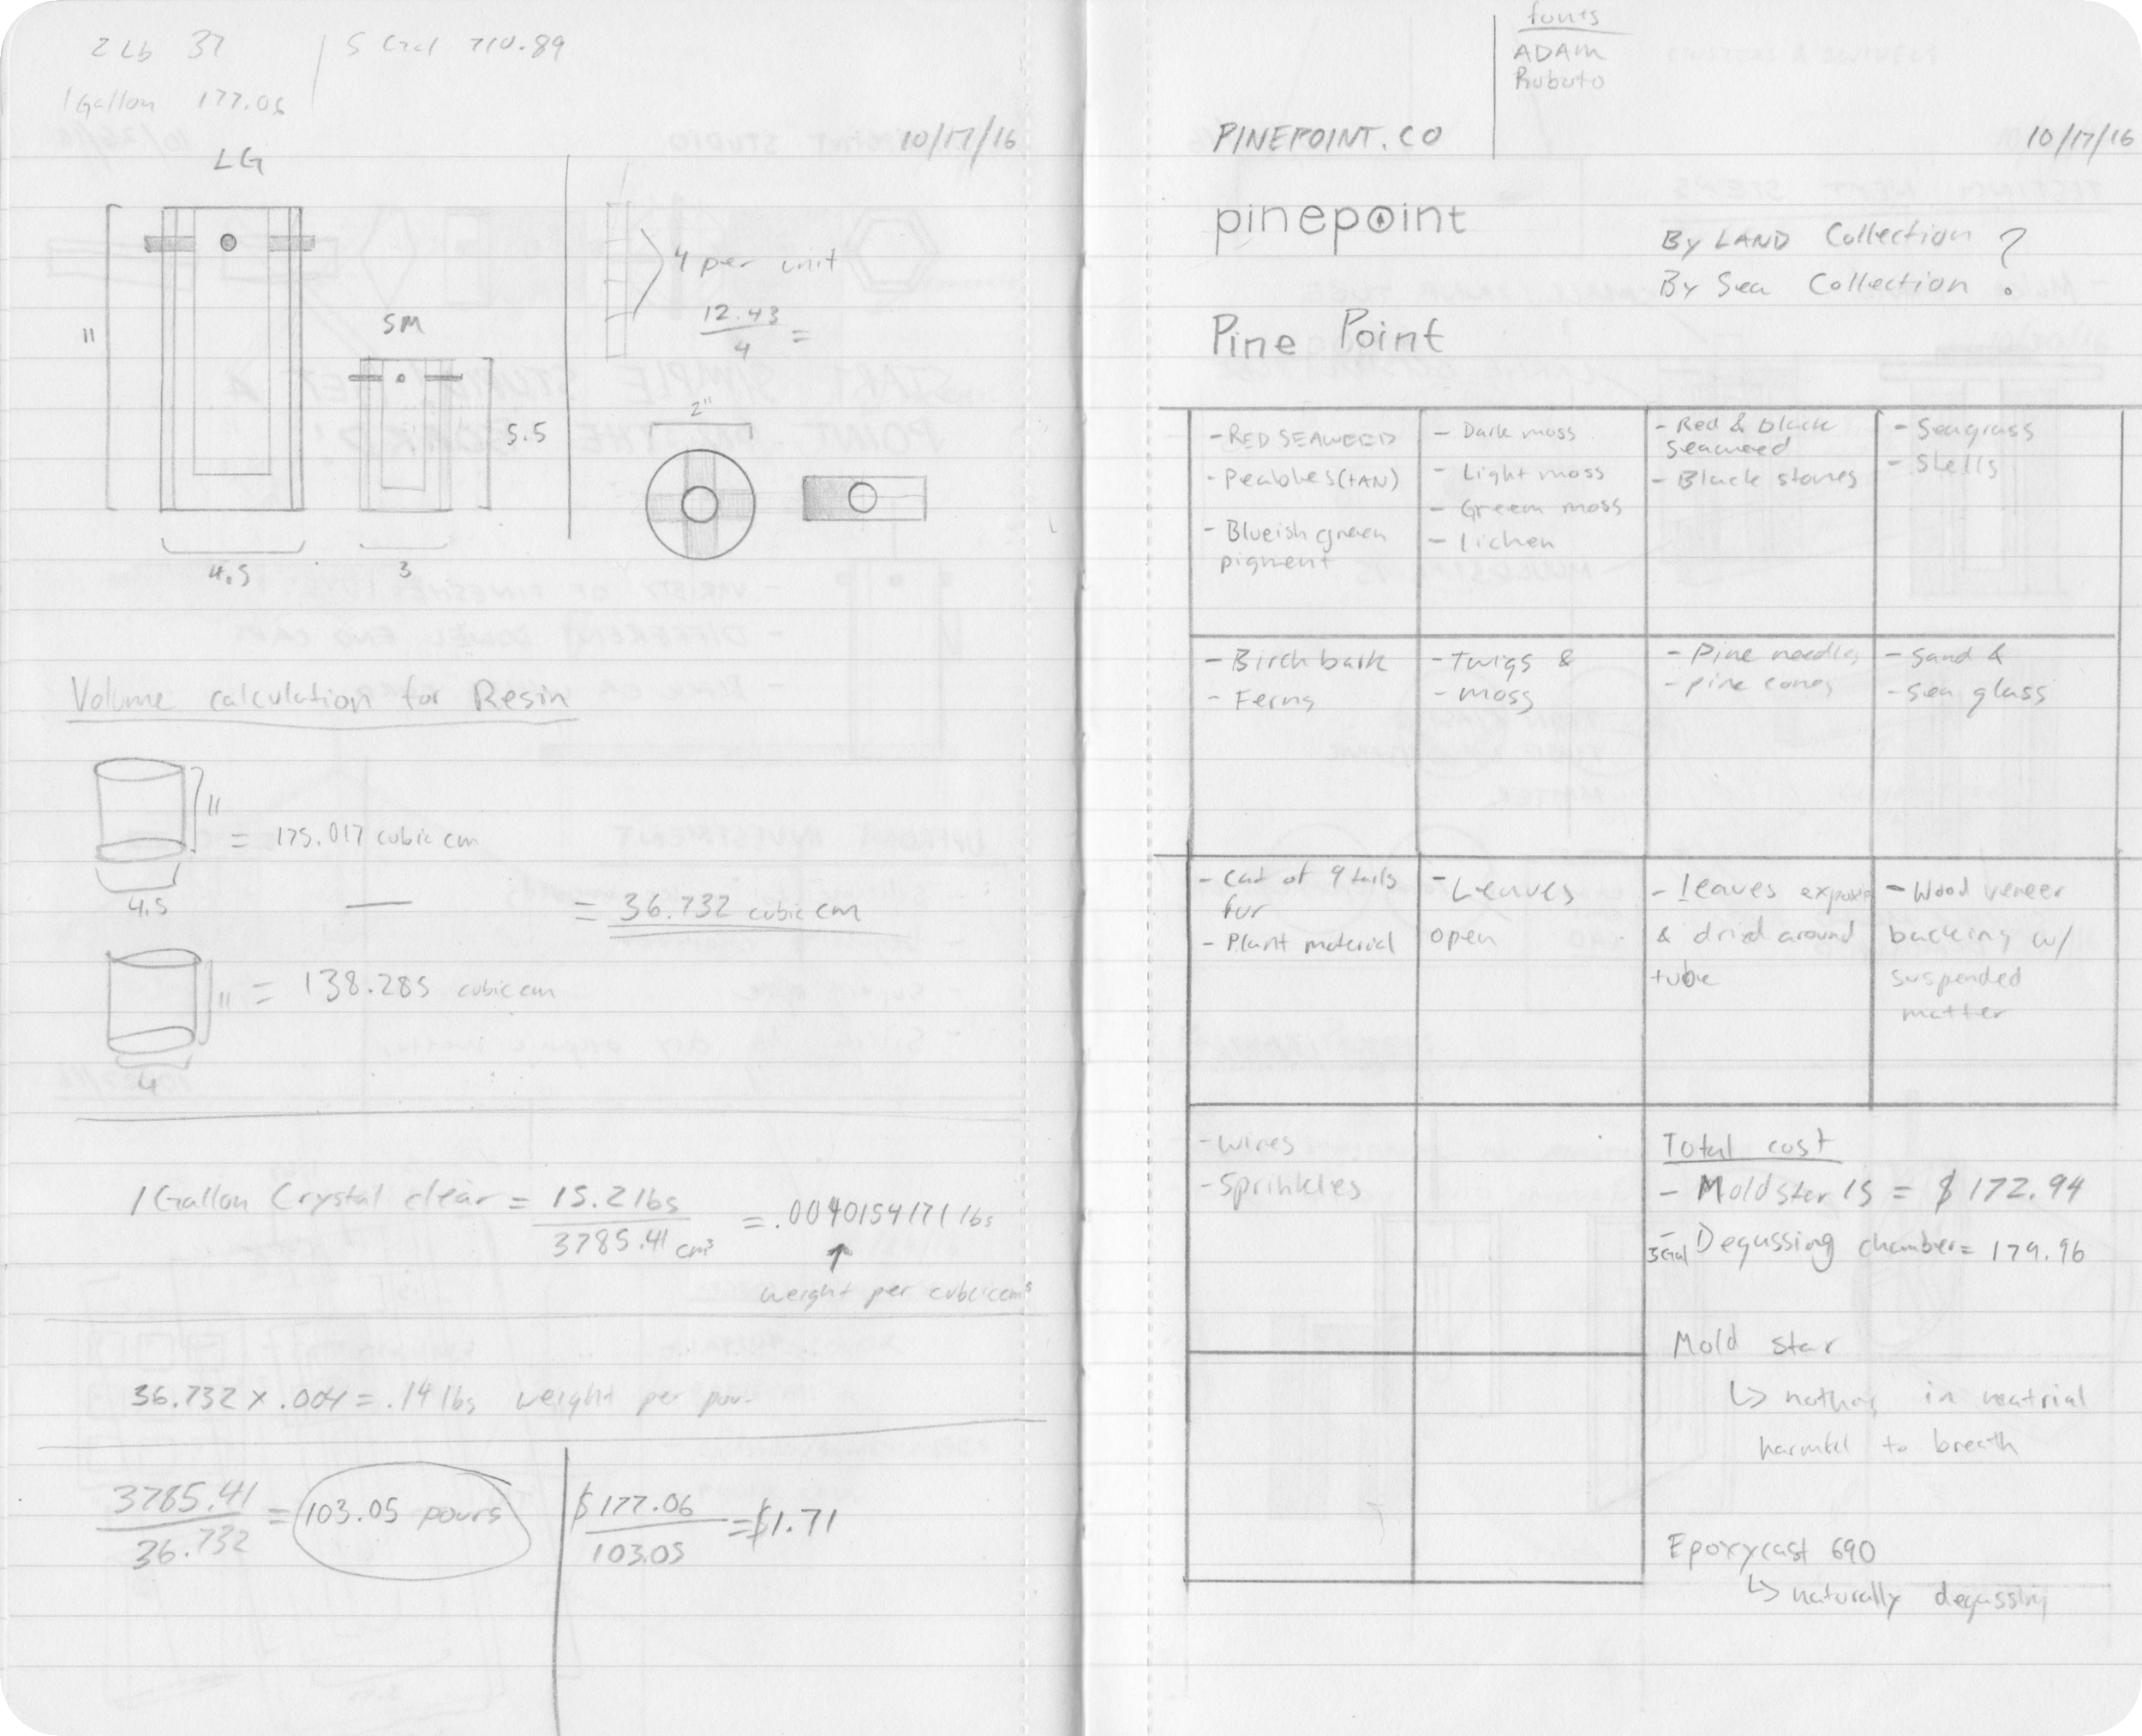 2 Lb 37
5 Gal 710.89
1 Gallon 177.06
10/17/16
LG
11
4.5
SM
5.5
3
4 per unit
12.43
4
=
2"
Volume calculation for Resin
11
= 175.017 cubic cm
4.5
—
= 36.732 cubic cm
11
= 138.285 cubic cm
4
1 Gallon Crystal clear = 15.2 lbs
3785.41 cm³
= .0040154171 lbs
weight per cubic cm³
36.732 x .004 = .14 lbs weight per pour
3785.41
36.732
= 103.05 pours
$177.06
103.05
= $1.71
fonts
ADAM
Roboto
PINEPOINT.CO
10/17/16
pinepoint
By LAND Collection
By Sea Collection
?
Pine Point
- RED SEAWEED
- Peabbles (TAN)
- Blueish green
pigment
- Dark moss
- Light moss
- Green moss
- lichen
- Red & black
seaweed
- Black stones
- Seagrass
- Shells
- Birch bark
- Ferns
- Twigs &
- moss
- Pine needles
- pine cones
- Sand &
- Sea glass
- Cat of 9 tails
fur
- Plant material
- Leaves
open
- Leaves
& dried around
tube
- Wood veneer
backing w/
suspended
matter
- wires
- Sprinkles
Total cost
- Mold ster 15 = $172.94
- 3Gal Degassing chamber = 179.96
Mold star
↳ nothing in matrial
harmful to breath
Epoxycast 690
↳ naturally degassing